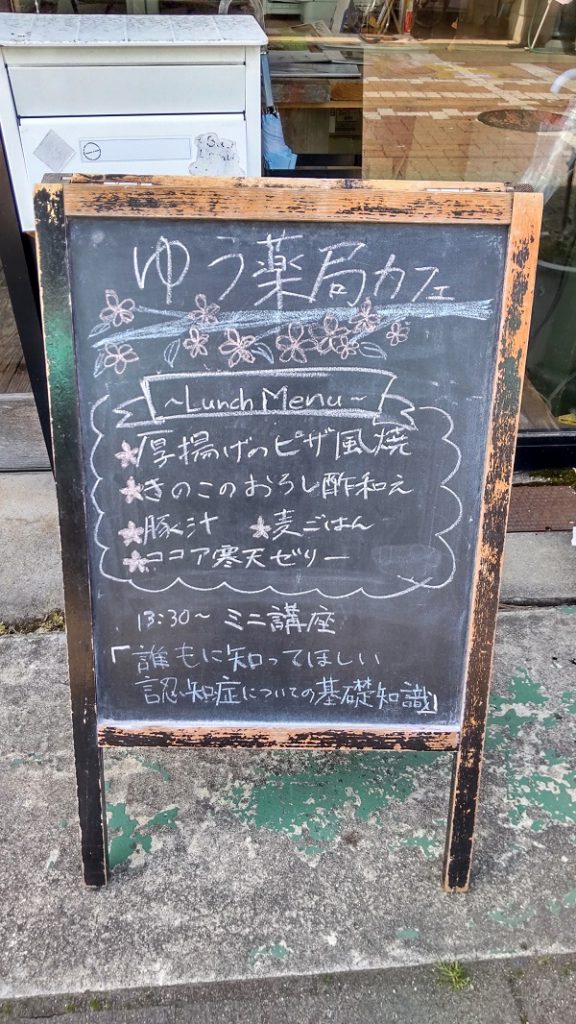 ゆう薬局カフェ
~Lunch Menu~
★厚揚げのピザ風焼
★きのこのおろし酢和え
★豚汁 ★麦ごはん
★ココア寒天ゼリー
13:30~ ミニ講座
「誰もに知ってほしい
認知症についての基礎知識」